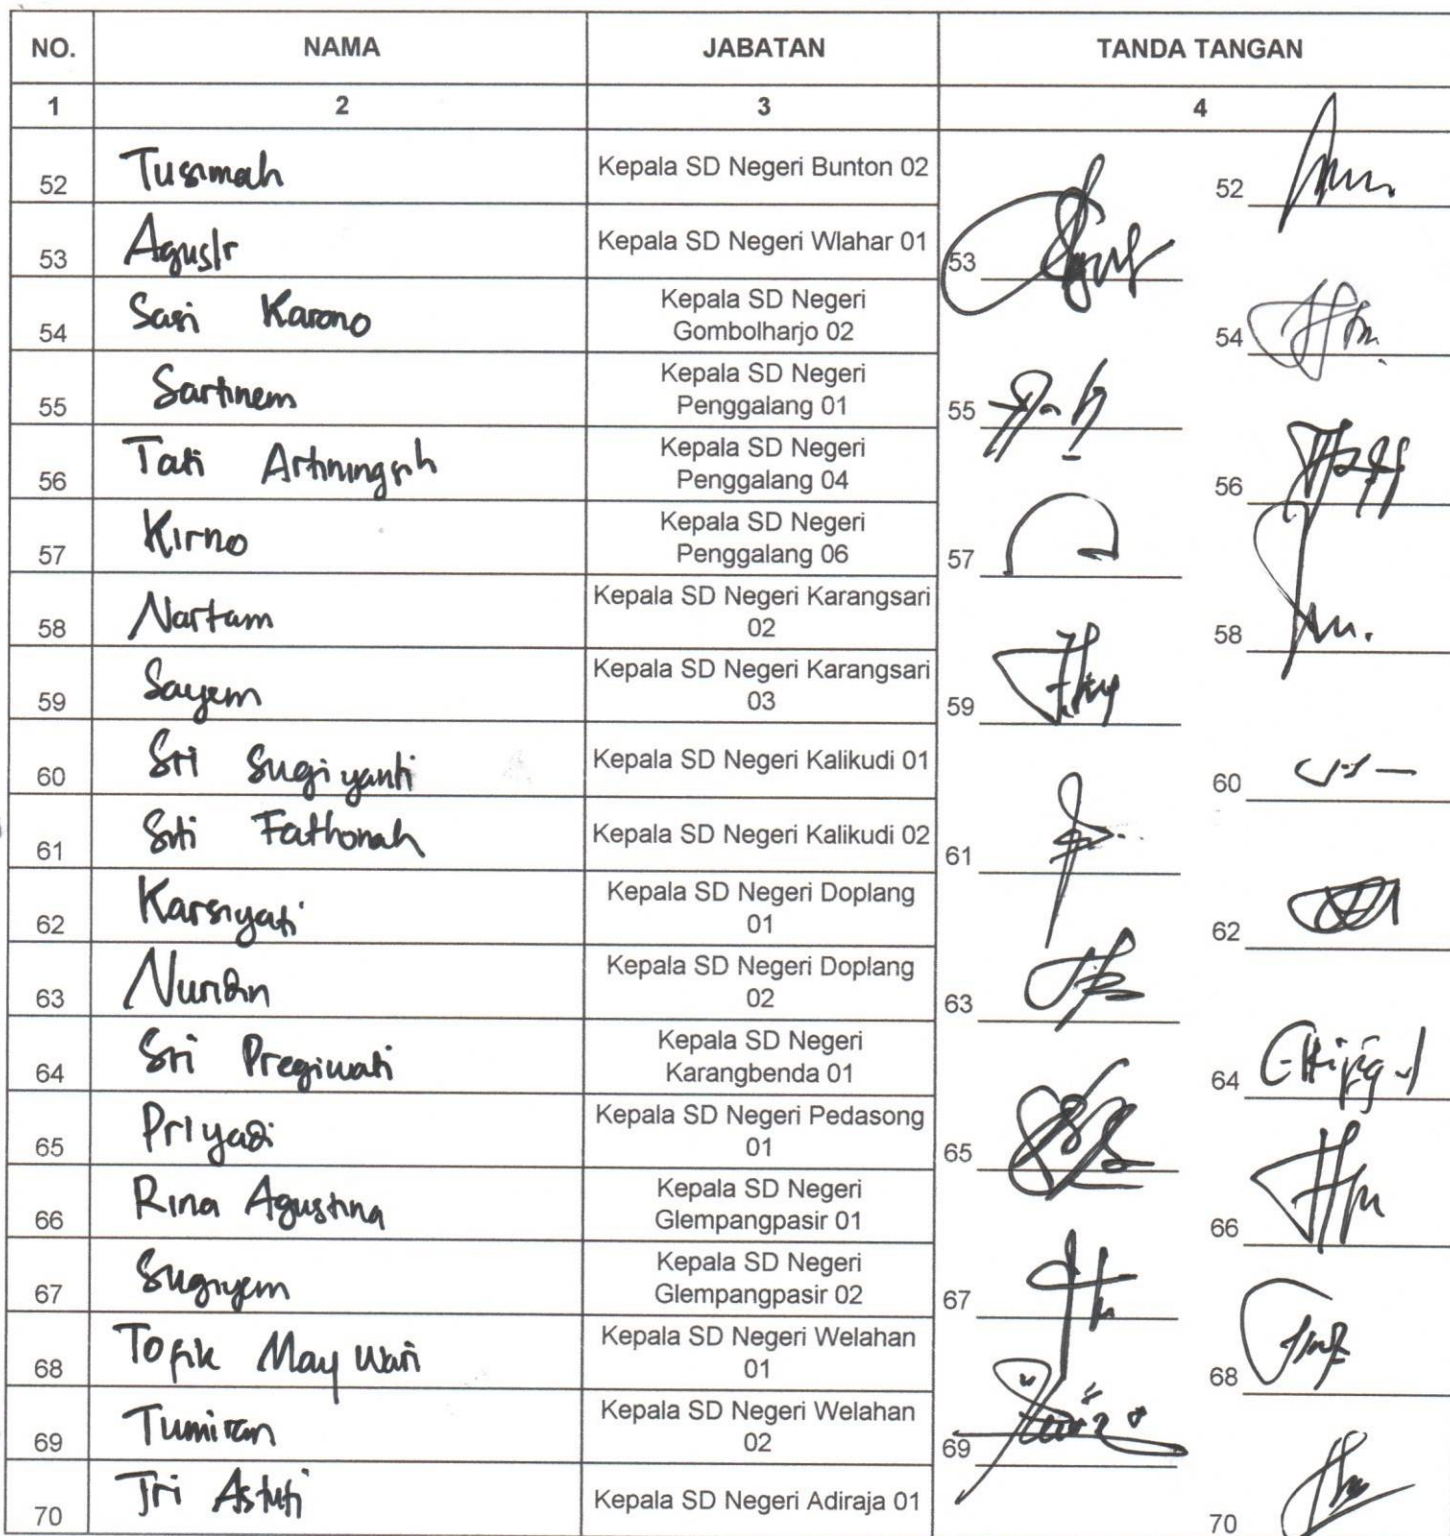 NO. NAMA JABATAN TANDA TANGAN
1 2 3 4
52 Tusimah Kepala SD Negeri Bunton 02 52
53 Kepala SD Negeri Wlahar 01 53
54 Sari Karono Kepala SD Negeri
Gombolharjo 02 54
55 Sartinem Kepala SD Negeri
Penggalang 01 55
56 Tati Artiningsih Kepala SD Negeri
Penggalang 04 56
57 Kirno Kepala SD Negeri
Penggalang 06 57
58 Nartam Kepala SD Negeri Karangsari
02 58
59 Sayem Kepala SD Negeri Karangsari
03 59
60 Sri Sugiyanti Kepala SD Negeri Kalikudi 01 60
61 Siti Fathonah Kepala SD Negeri Kalikudi 02 61
62 Karsiyati Kepala SD Negeri Doplang
01 62
63 Kepala SD Negeri Doplang
02 63
64 Sri Pregiwati Kepala SD Negeri
Karangbenda 01 64
65 Priyadi Kepala SD Negeri Pedasong
01 65
66 Rina Agustina Kepala SD Negeri
Glempangpasir 01 66
67 Sugiyem Kepala SD Negeri
Glempangpasir 02 67
68 Tofik May Wari Kepala SD Negeri Welahan
01 68
69 Tumiran Kepala SD Negeri Welahan
02 69
70 Tri Astuti Kepala SD Negeri Adiraja 01 70